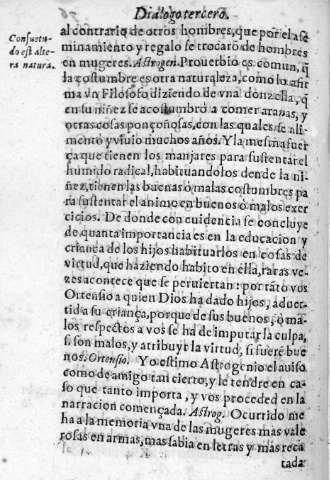 Dialogo tercero.
Consuetu-
do est alte-
ra natura.
al contrario de otros hombres, que por el afe
minamiento y regalo se trocarõ de hombres
en mugeres. Astrogen. Prouerbio es comun, q̃
la costumbre es otra naturaleza, como lo afir
ma vn Filosofo diziendo de vna donzella, q̃
en su niñez se acostumbrò a comer arañas, y
otras cosas ponçoñosas, con las quales se ali-
mentò y viuio muchos años. Y la mesma fuer
ça que tienen los manjares para sustentar el
humido radical, habituandolos dende la ni-
ñez, tienen las buenas ò malas costumbres pa
ra sustentar el animo en buenos ò malos exer
cicios. De donde con euidencia se concluye
de quanta importancia es en la educacion y
criança de los hijos habituarlos en cosas de
virtud, que haziendo habito en ella, raras ve-
zes acontece que se peruiertan: por tãto vos
Ortensio a quien Dios ha dado hijos, aduer-
tid a su criança, porque de sus buenos, ò ma-
los respectos a vos se ha de imputar la culpa,
si son malos, y atribuyr la virtud, si fuere bue
nos. Ortensio. Yo estimo Astrogenio el auiso
como de amigo tan cierto, y le tendre en ca-
so que tanto importa, y vos proceded en la
narracion començada. Astrog. Ocurrido me
ha a la memoria vna de las mugeres mas vale
rosas en armas, mas sabia en letras y mas reca
tada